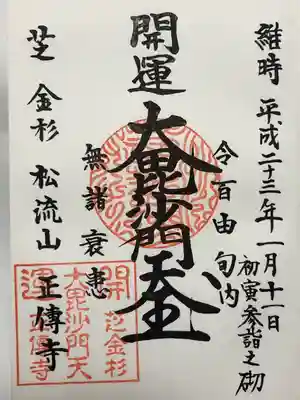 維時 平成二十三年一月十一日
初寅参詣之砌
令百由旬内
開運 大毘沙門天王
無諸衰患
芝 金杉 松流山 正傳寺
芝金杉
開運
大毘沙門天
正傳寺